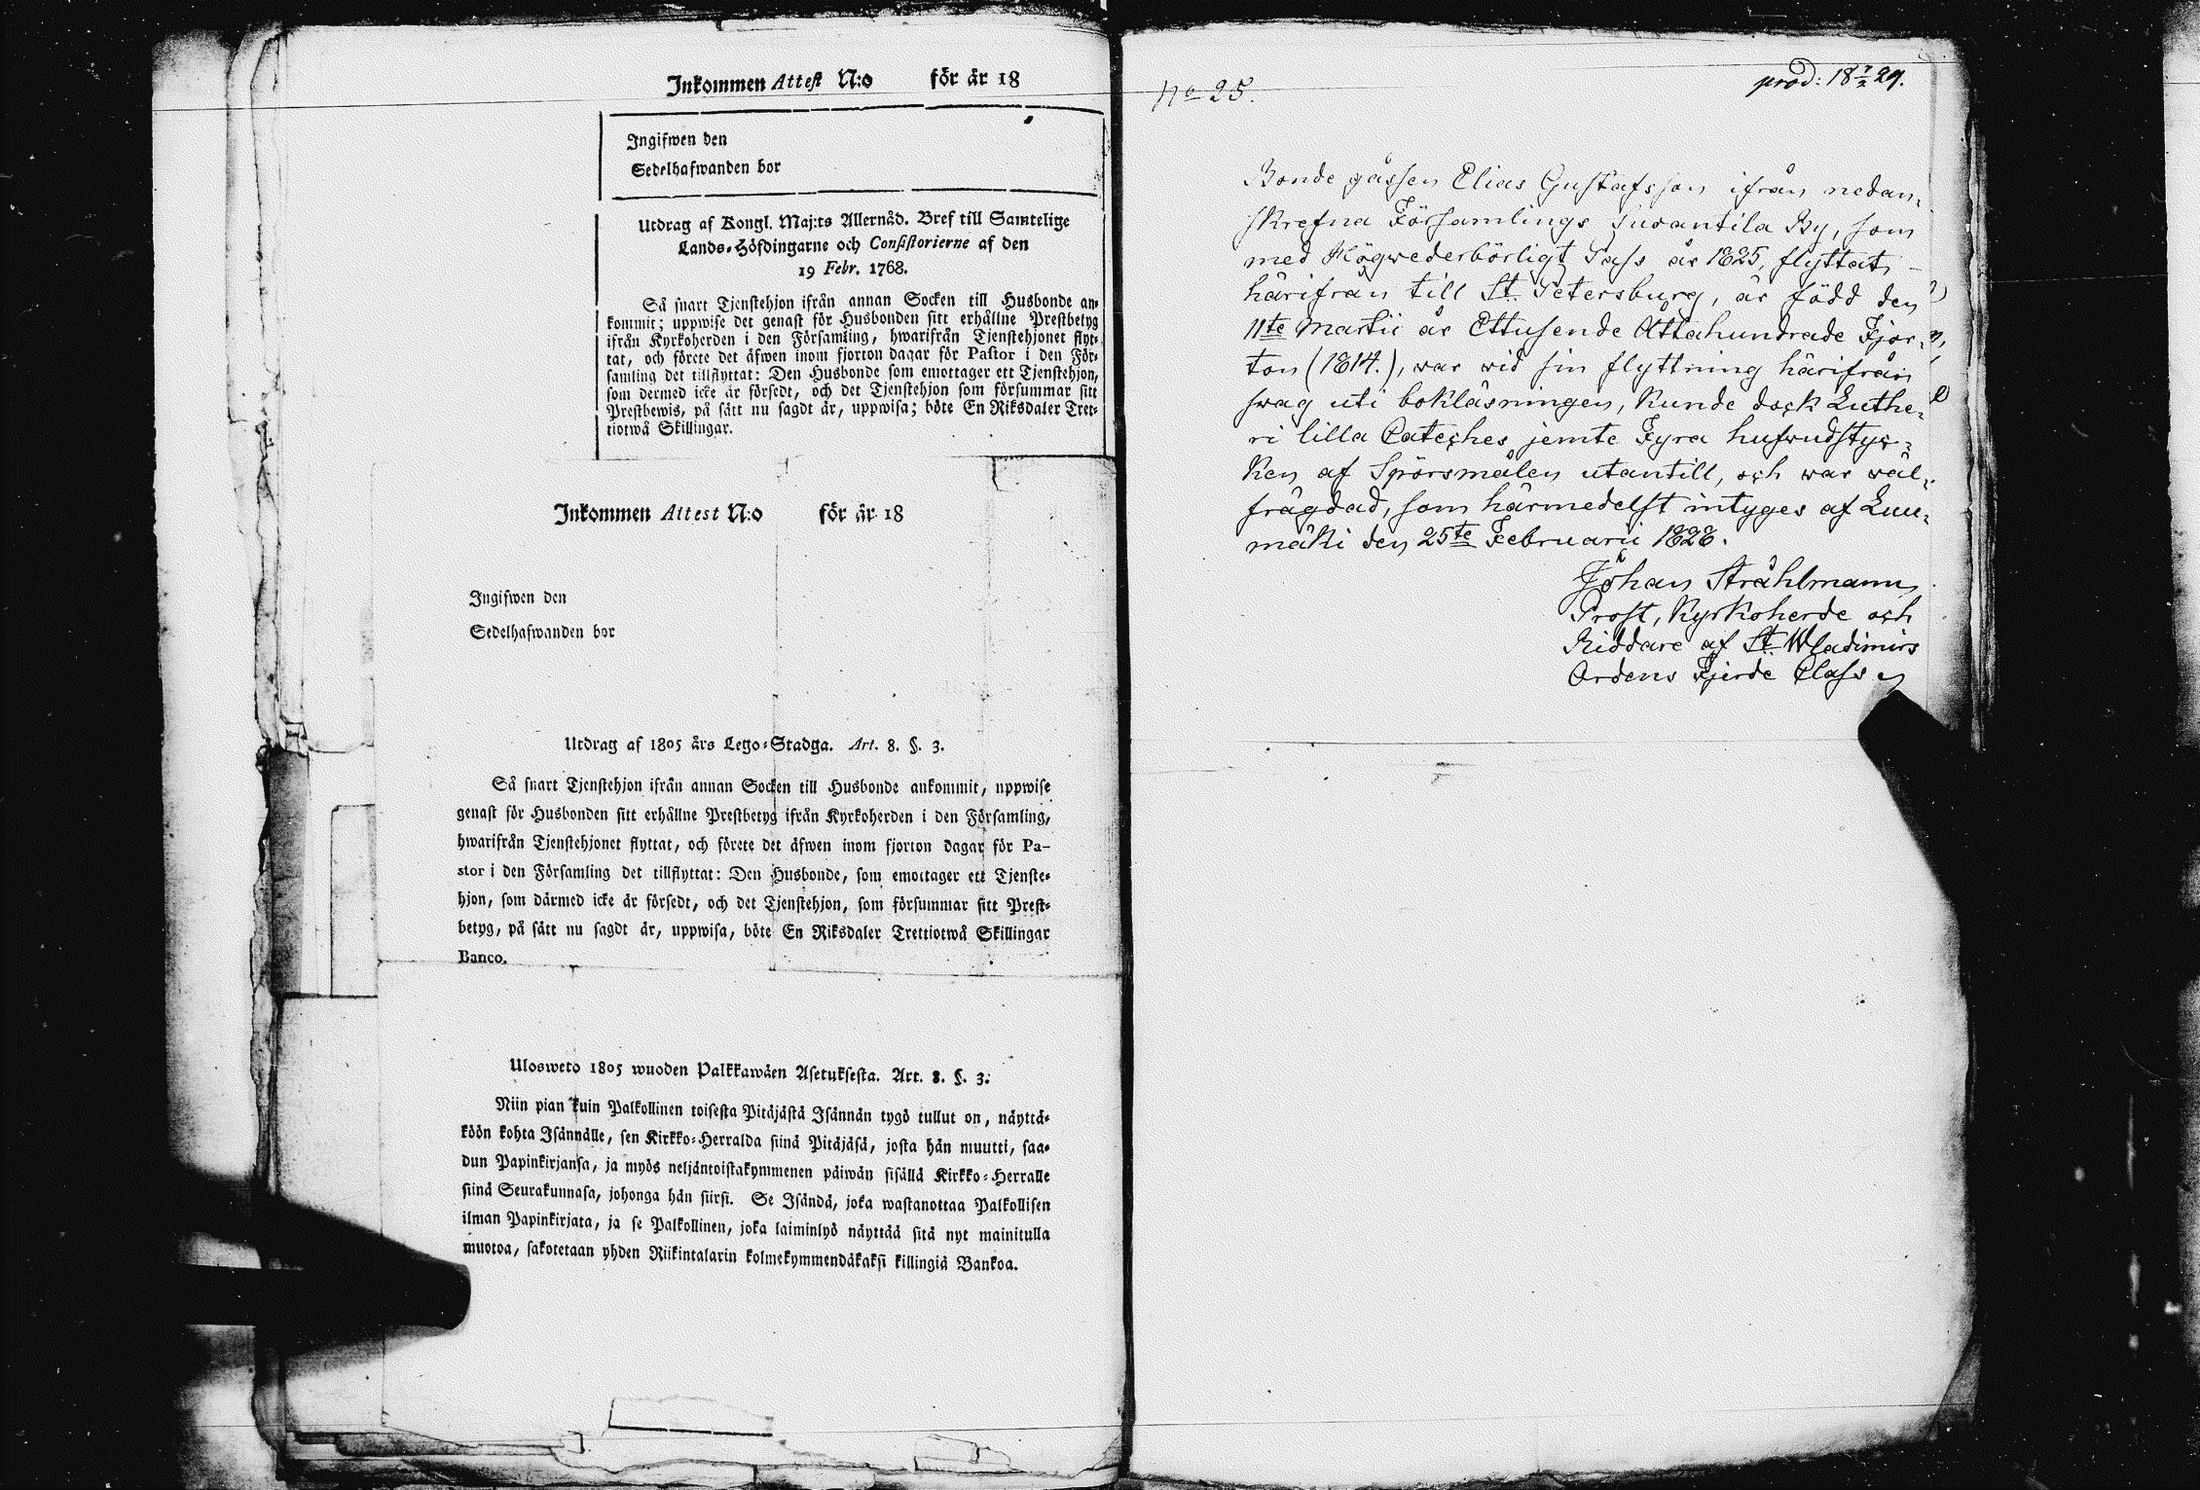 Inkommen Attest N:o för år 18
Ingifwen den
Sedelhafwanden bor
Utdrag af Kongl. Maj:ts Allernåd. Bref till Samtelige
Lands-Höfdingarne och Consistorierne af den
19 Febr. 1768.
Så snart Tjenstehjon ifrån annan Socken till Husbonde an-
kommit; uppwise det genast för Husbonden sitt erhållne Prestbetyg
ifrån Kyrkoherden i den Församling, hwarifrån Tjenstehjonet flyt-
tat, och förete det äfwen inom fjorton dagar för Pastor i den För-
samling det tillflyttat: Den Husbonde som emottager ett Tjenstehjon,
som dermed icke är försedt, och det Tjenstehjon som försummar sitt
Prestbewis, på sätt nu sagdt är, uppwisa; böte En Riksdaler Tret-
tiotwå Skillingar.
Inkommen Attest N:o för år 18
Ingifwen den
Sedelhafwanden bor
Utdrag af 1805 års Lego-Stadga. Art. 8. §. 3.
Så snart Tjenstehjon ifrån annan Socken till Husbonde ankommit, uppwise
genast för Husbonden sitt erhållne Prestbetyg ifrån Kyrkoherden i den Församling,
hwarifrån Tjenstehjonet flyttat, och förete det äfwen inom fjorton dagar för Pa-
stor i den Församling det tillflyttat: Den Husbonde, som emottager ett Tjenste-
hjon, som därmed icke är försedt, och det Tjenstehjon, som försummar sitt Prest-
betyg, på sätt nu sagdt är, uppwisa, böte En Riksdaler Trettiotwå Skillingar
Banco.
Ulosweto 1805 wuoden Palkkawäen Asetuksesta. Art. 8. §. 3.
Niin pian kuin Palkollinen toisesta Pitäjästä Isännän tygö tullut on, näyttä-
köön kohta Isännälle, sen Kirkko-Herralda siinä Pitäjäsä, josta hän muutti, saa-
dun Papinkirjansa, ja myös neljäntoistakymmenen päiwän sisällä Kirkko-Herralle
siinä Seurakunnasa, johonga hän siirsi. Se Isändä, joka wastanottaa Palkollisen
ilman Papinkirjata, ja se Palkollinen, joka laiminlyö näyttää sitä nyt mainitulla
muotoa, sakotetaan yhden Riikintalarin kolmekymmendäkaksi killingiä Bankoa.
No 25.
prod: 18 7/2 29.
Bonde gåssen Elias Gustafsson ifrån nedan-
skrefna Församlings Suoantila By, som
med Högwederbörligt Pass år 1825, flyttat
härifrån till St. Petersburg, är född den
11te Martii år Ettusende Ottahundrade Fjor-
ton (1814.), war wid sin flyttning härifrån
swag uti bokläsningen, kunde dock Luthe-
ri lilla Cateches jemte Fyra hufwudstyc-
ken af Spörsmålen utantill, och war wäl-
frägdad, som härmedelst intyges af Luu-
mäki den 25te Februarii 1828.
Johan Stråhlmann
Prost, Kyrkoherde och
Riddare af St. Wladimirs
Ordens Fjerde Class